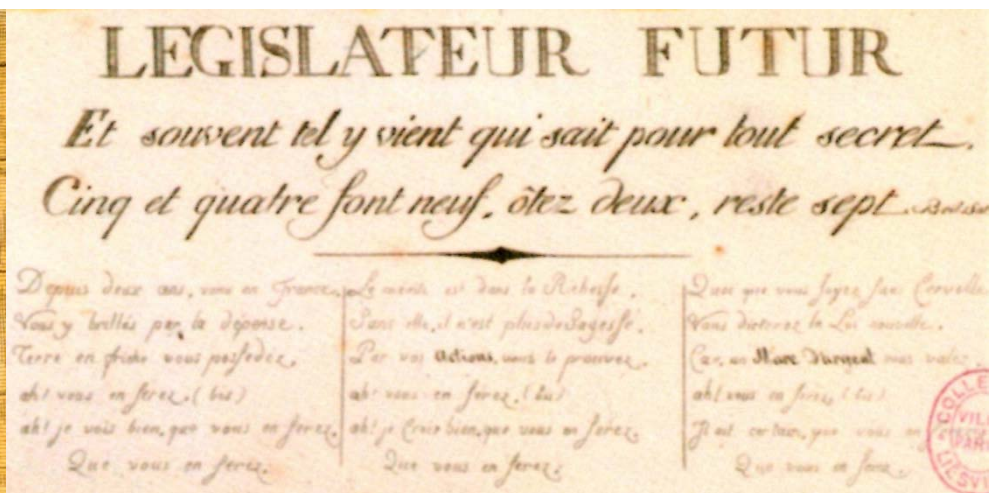 LEGISLATEUR FUTUR
Et souvent tel y vient qui sait pour tout secret.
Cinq et quatre font neuf, ôtez deux, reste sept.
Depuis deux ans, venu en France,
Vous y brillés par la dépense.
Terre en friche vous possedez.
ah! vous en ferez. (bis)
ah! je vois bien, que vous en ferez.
Que vous en ferez.
Le mérite est dans la Richesse.
Sans elle, il n'est plus de Sagesse.
Par vos Actions, vous le prouvez.
ah! vous en ferez. (bis)
ah! je Crois bien, que vous en ferez.
Que vous en ferez.
Quoi que vous soyez sans Cervelle
Vous dicterez la Loi nouvelle.
Car, un Marc d'argent vous valez.
ah! vous en ferez. (bis)
Il est certain, que vous en
Que vous en ferez.
COLLE
VILLE
PARIS
LIESVI